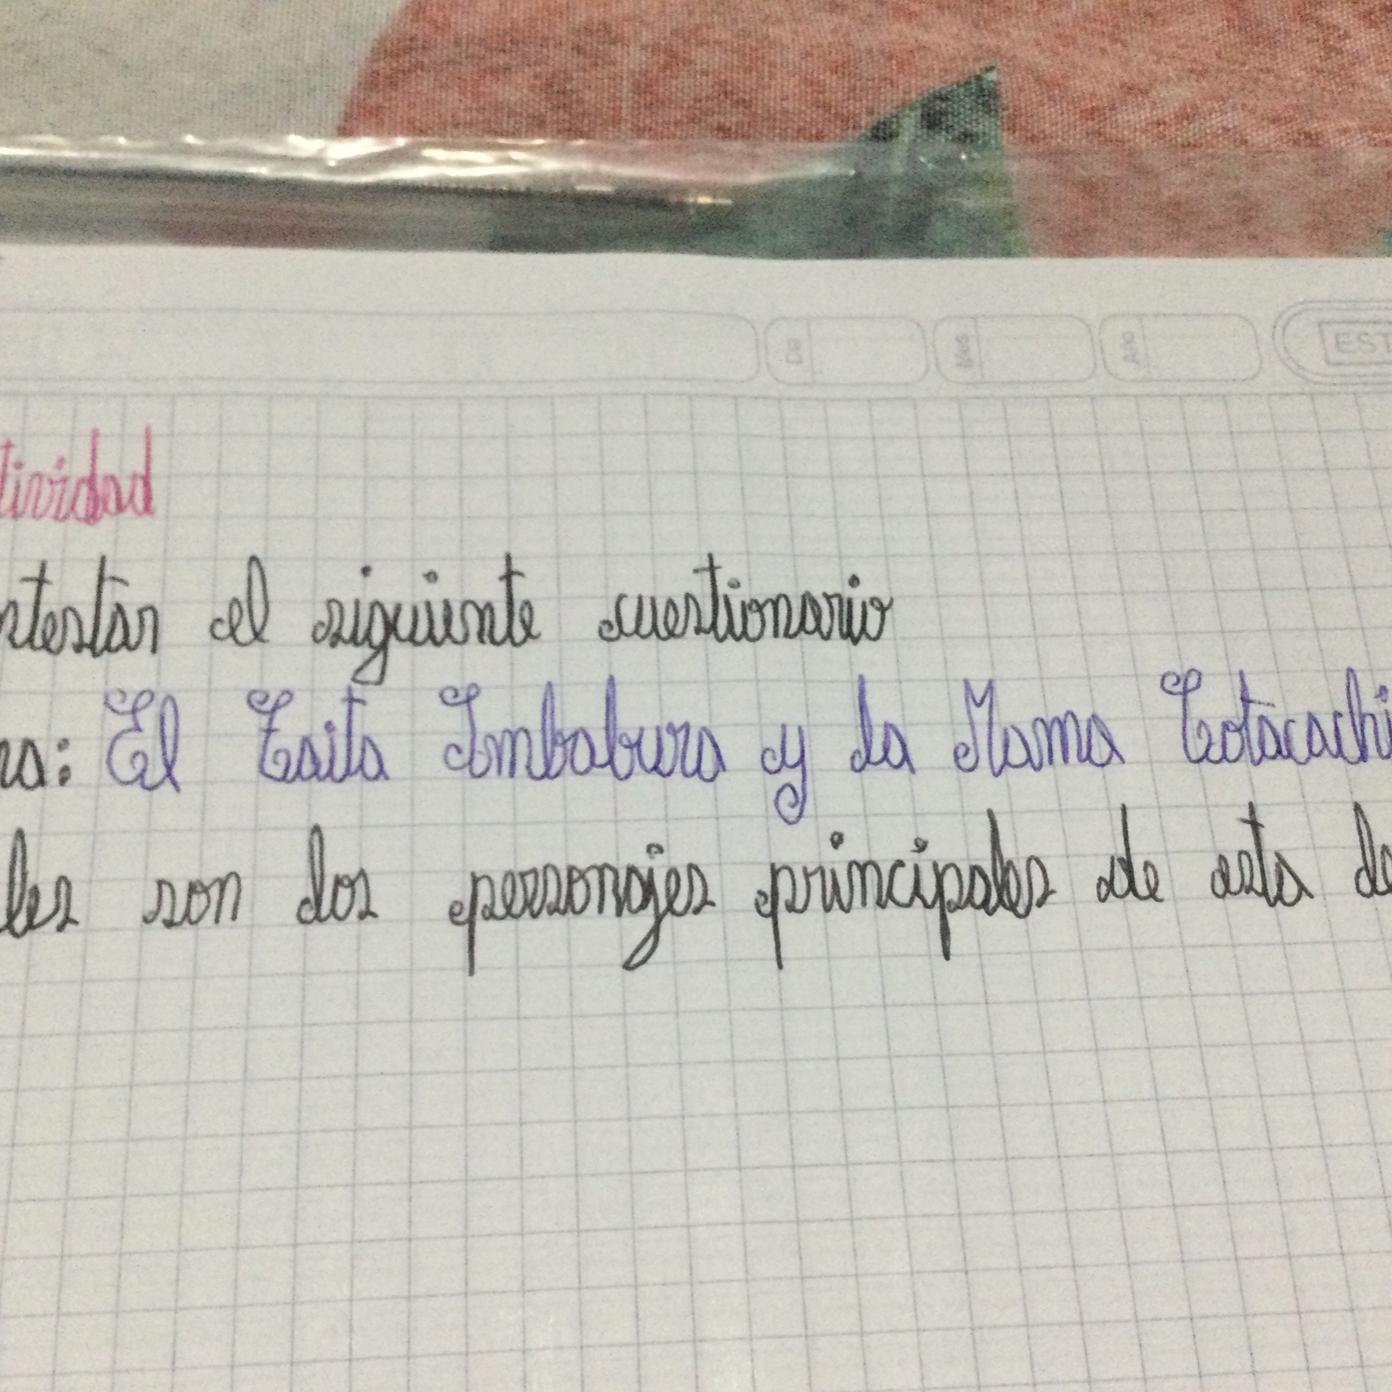 Día Mes Año EST
tividad
ntestar el siguiente cuestionario
ra: El Taita Imbabura y la Mama Cotacachi
les son los personajes principales de esta le